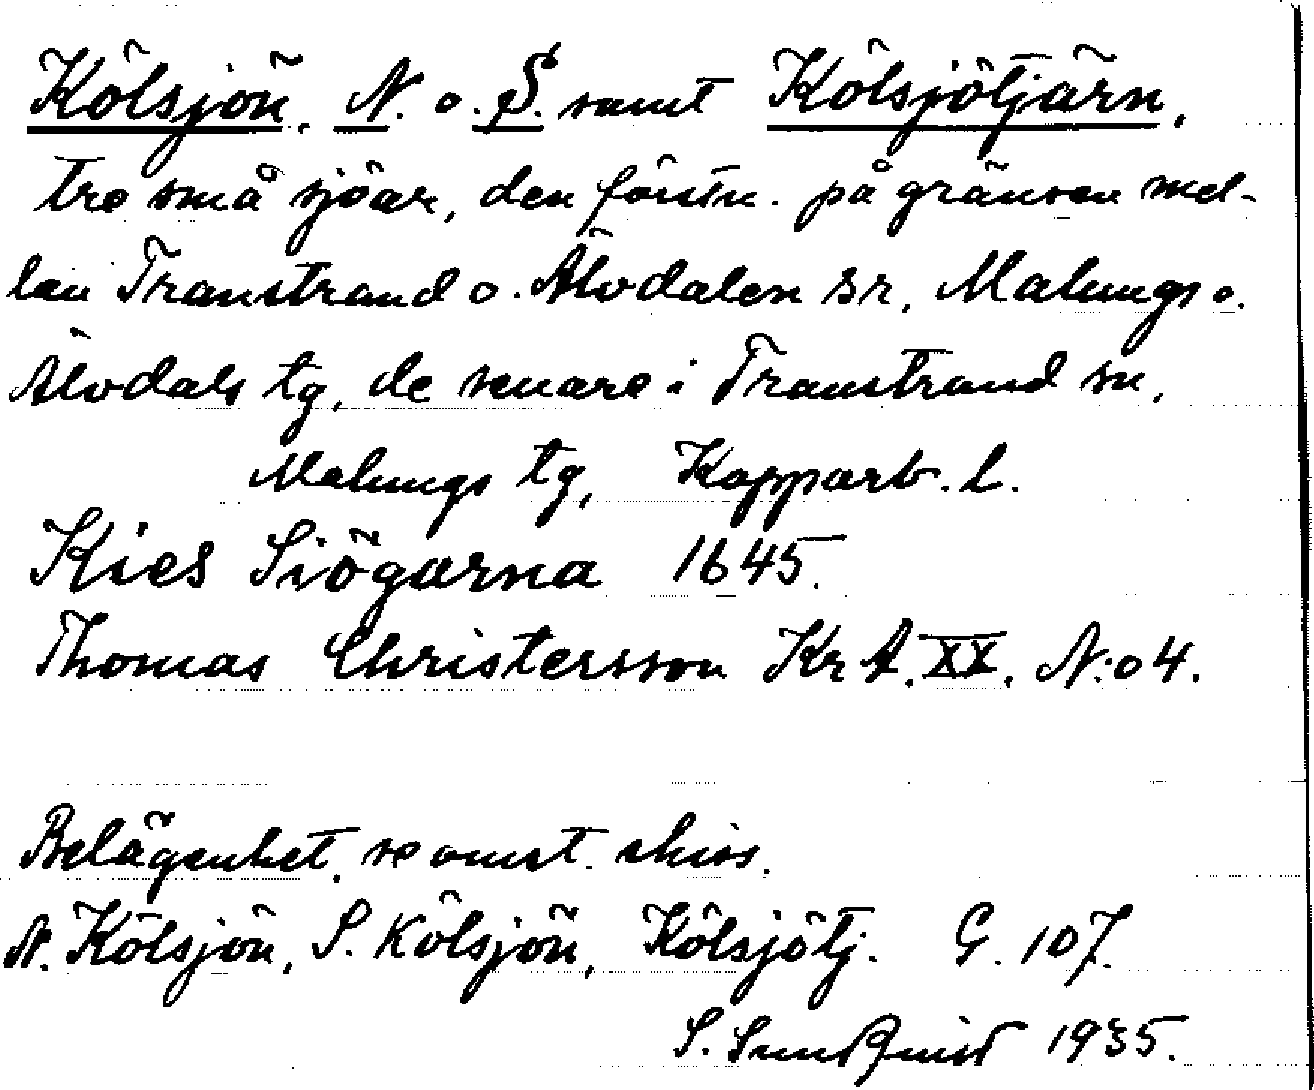 Kölsjön, N. o. S. samt Kölsjötjärn,
tre små sjöar, den förstn. på gränsen mel-
lan Transtrand o. Älvdalen sr, Malungs o.
Älvdals tg, de senare i Transtrand sn,
Malungs tg, Kopparb. l.
Kies Siögarna 1645.
Thomas Christersson Kr A. XX. N:o 4.
Belägenhet, se omst. skiss.
N. Kölsjön, S. Kölsjön, Kölsjötj. G. 107.
S. Sundquist 1935.